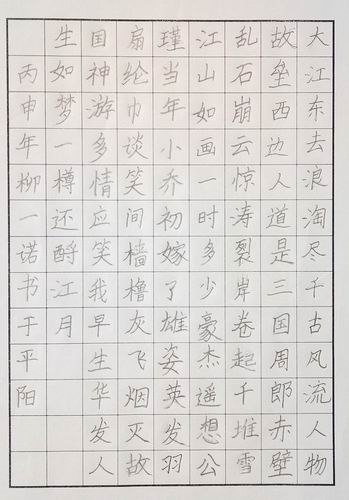 大江东去浪淘尽千古风流人物
故垒西边人道是三国周郎赤壁
乱石崩云惊涛裂岸卷起千堆雪
江山如画一时多少豪杰遥想公
瑾当年小乔初嫁了雄姿英发羽
扇纶巾谈笑间樯橹灰飞烟灭故
国神游多情应笑我早生华发人
生如梦一樽还酹江月
丙申年柳一诺书于平阳